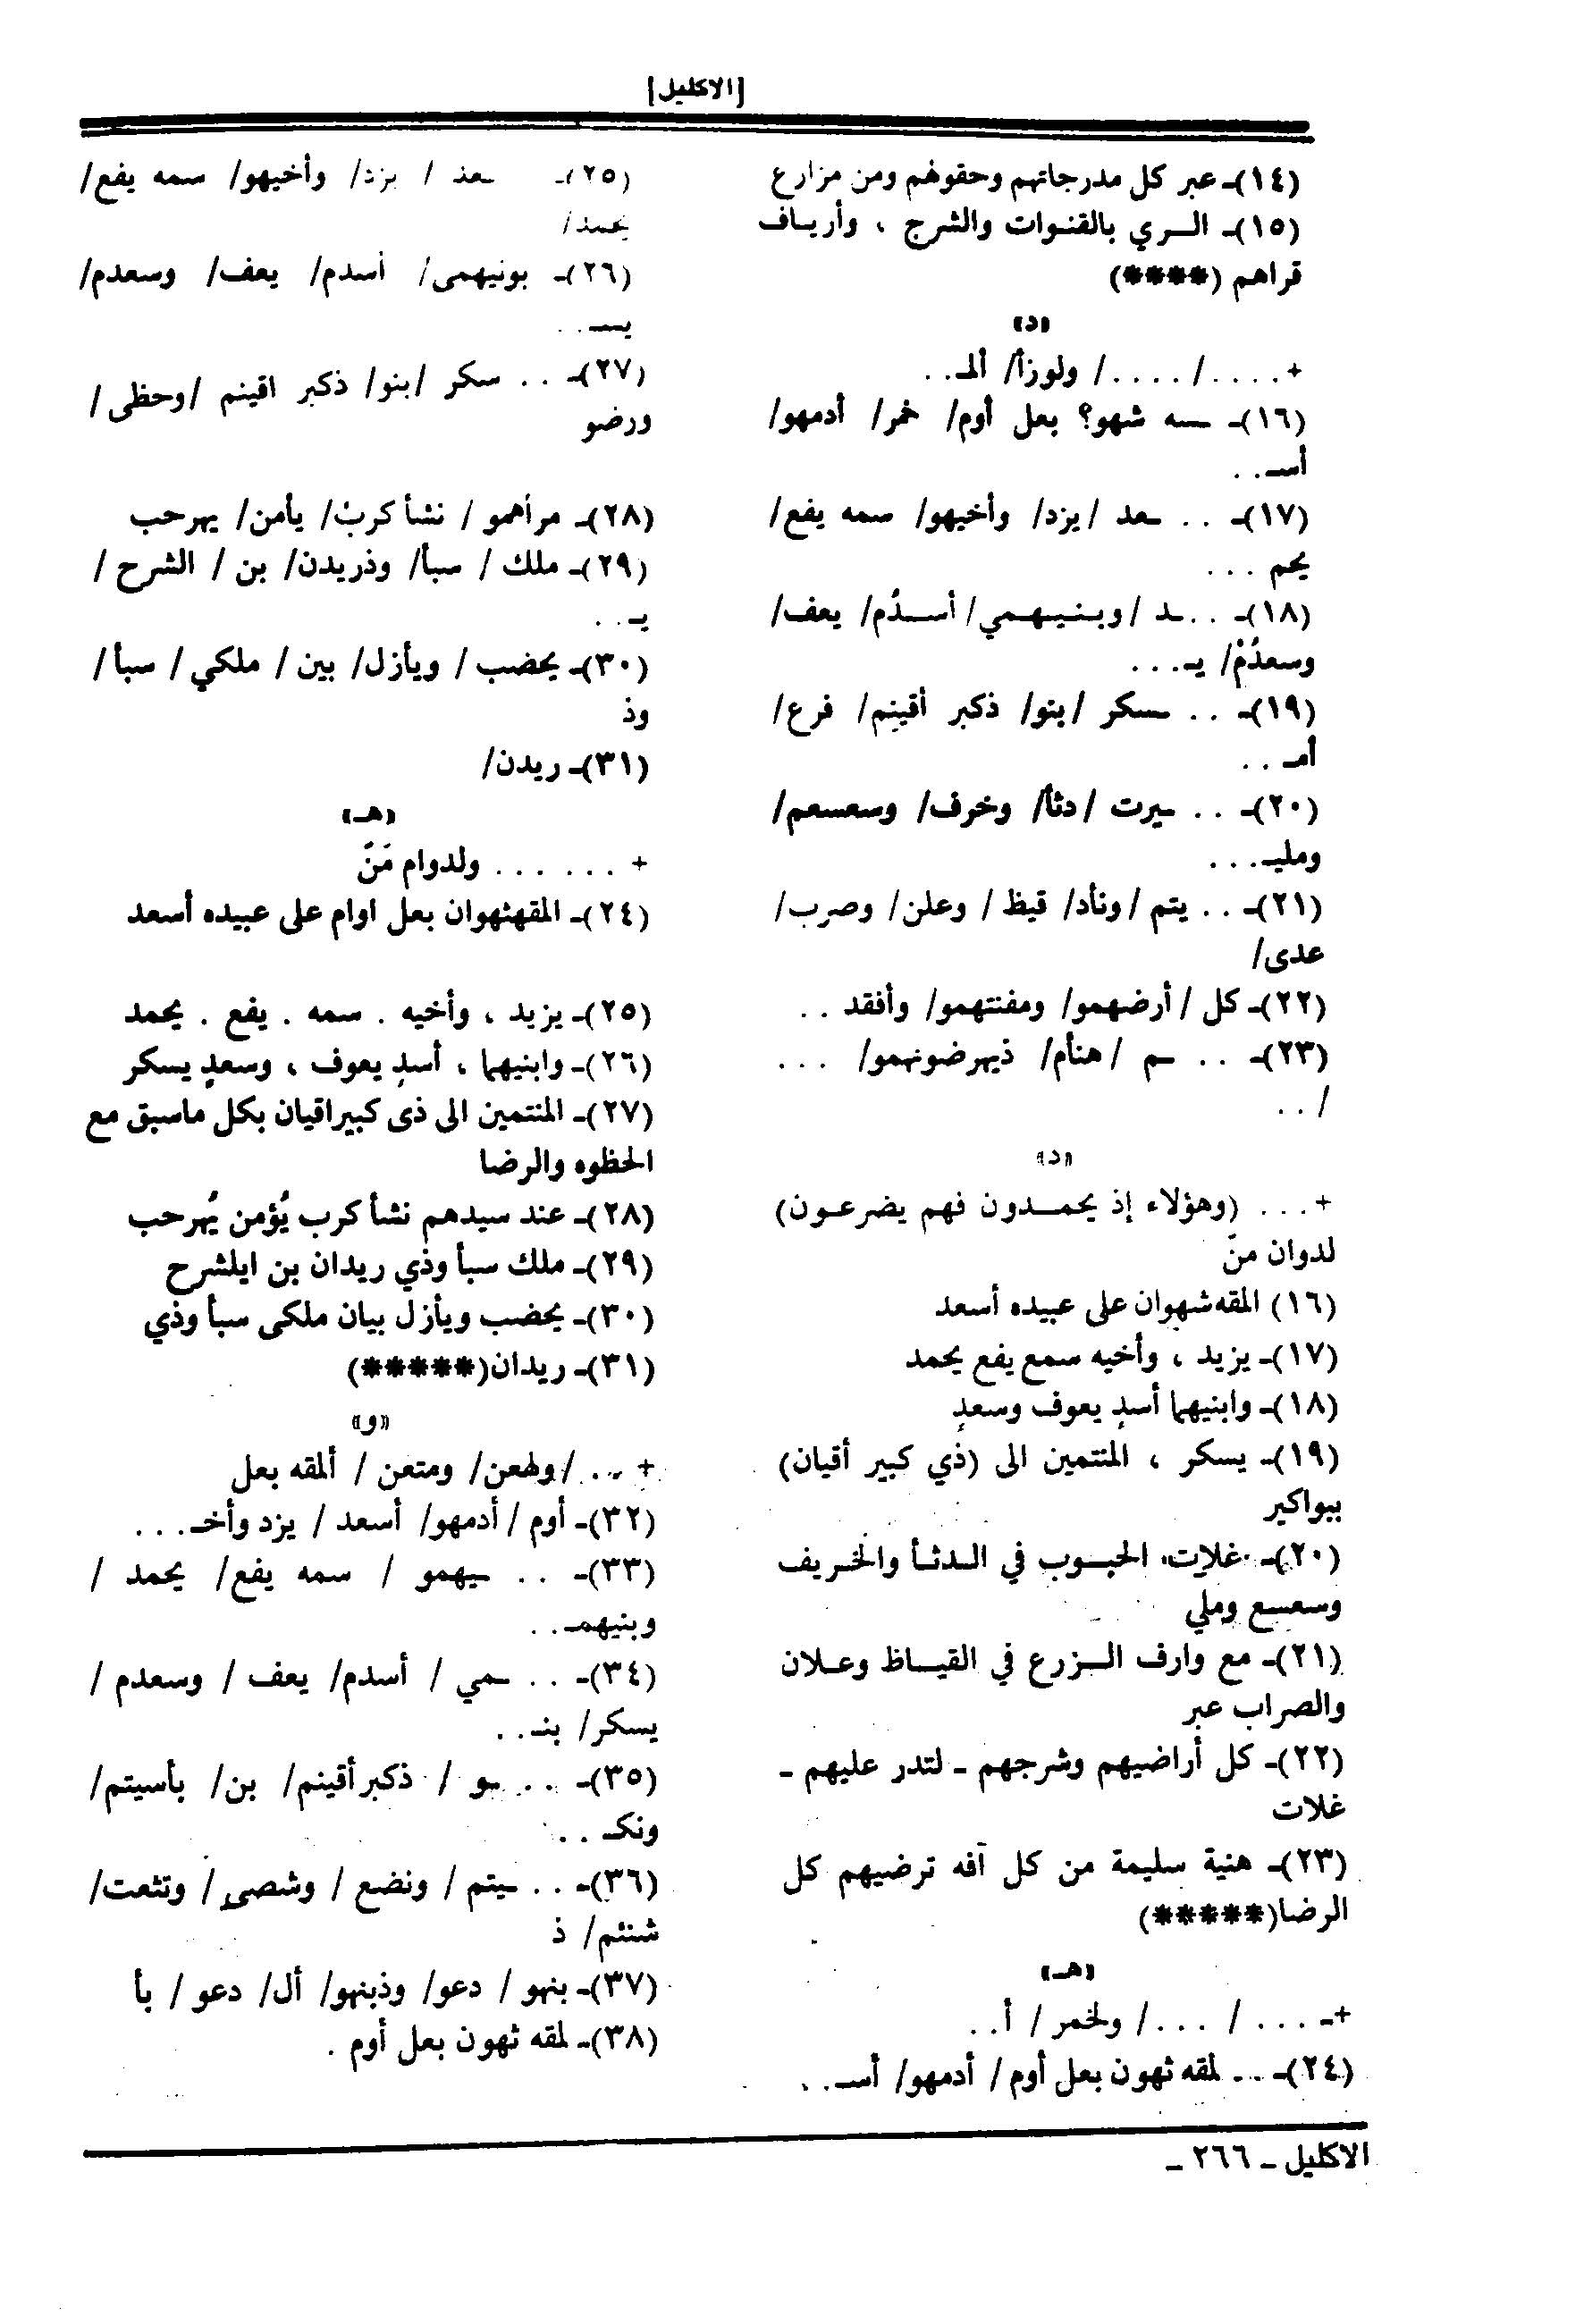 [الاكليل]
(١٤)ـ عبر كل مدرجاتهم وحقولهم ومن مزارع
(١٥)ـ الـري بالقنوات والشرج ، وأريـاف
قراهم (****)
«د»
+ . . . . / . . . . / ولوزأ/ ألمـ . .
(١٦)ـ ـسه شهو؟ بعل أوم/ خمر/ أدمهو/
أسـ . .
(١٧)ـ . . ـعد / يزد/ وأخيهو/ سمه يفع/
يحم . . .
(١٨)ـ . . ـد / وبـنـيـهـمي/ أسـدُم/ يعف/
وسعدُمْ/ يـ . . .
(١٩)ـ . . ـسكر / بنو/ ذكبر أقينم/ فرع/
أمـ . .
(٢٠)ـ . . ـيرت / دثأ/ وخرف/ وسعسعم/
ومليـ . . .
(٢١)ـ . . يتم / ونأد/ قيظ / وعلن/ وصرب/
عدى/
(٢٢)ـ كل / أرضهمو/ ومفنتهمو/ وأفقد . .
(٢٣)ـ . . ـم / هنأم/ ذيهرضونهمو/ . . .
/ . .
«د»
+ . . . (وهؤلاء إذ يحمـدون فهم يضرعـون)
لدوان منّ
(١٦) المقه شهوان على عبيده أسعد
(١٧)ـ يزيد ، وأخيه سمع يفع يحمد
(١٨)ـ وابنيهما أسدٍ يعوف وسعدٍ
(١٩)ـ يسكر ، المنتمين الى (ذي كبير أقيان)
ببواكير
(٢٠)ـ غلات الحبـوب في الـدثـأ والخـريف
وسعسع وملي
(٢١)ـ مع وارف الـزرع في القيـاظ وعـلان
والصراب عبر
(٢٢)ـ كل أراضيهم وشرجهم ـ لتدر عليهم ـ
غلات
(٢٣)ـ هنية سليمة من كل آفه ترضيهم كل
الرضا(*****)
«هـ»
+ـ . . . / . . . / ولخمر / أ . .
(٢٤)ـ . . لمقه ثهون بعل أوم / أدمهو/ أسـ . .
(٢٥)ـ ـعد / يزد/ وأخيهو/ سمه يفع/
يحمد/
(٢٦)ـ بونيهمى/ أسدم/ يعف/ وسعدم/
يسـ . .
(٢٧)ـ . . سكر / بنو/ ذكبر اقينم / وحظى /
ورضو
(٢٨)ـ مرأهمو / نشأ كربْ/ يأمن/ يهرحب
(٢٩)ـ ملك / سبأ/ وذريدن/ بن / الشرح /
يـ . .
(٣٠)ـ يحضب / ويأزل/ بين / ملكي / سبأ /
وذ
(٣١)ـ ريدن/
«هـ»
+ . . . . . . ولدوام مَنّ
(٢٤)ـ المقهثهوان بعل اوام على عبيده أسعد
(٢٥)ـ يزيد ، وأخيه . سمه . يفع . يحمد
(٢٦)ـ وابنيهما ، أسدٍ يعوف ، وسعدٍ يسكر
(٢٧)ـ المنتمين الى ذى كبيراقيان بكل ماسبق مع
الحظوه والرضا
(٢٨)ـ عند سيدهم نشأ كرب يُؤمن يُهرحب
(٢٩)ـ ملك سبأ وذي ريدان بن ايلشرح
(٣٠)ـ يحضب ويأزل بيان ملكى سبأ وذي
(٣١)ـ ريدان(*****)
«و»
+ . . . / ولهعن/ ومتعن / ألمقه بعل
(٣٢)ـ أوم / أدمهو/ أسعد / يزد وأخـ . . .
(٣٣)ـ . . ـيهمو / سمه يفع/ يحمد /
وبنيهمـ . .
(٣٤)ـ . . ـمي / أسدم/ يعف / وسعدم /
يسكر/ بنـ . .
(٣٥)ـ . . ـو / ذكبر أقينم/ بن/ بأسيتم/
ونكـ . .
(٣٦)ـ . . ـيتم / ونضع / وشصي / وتثعت/
شنئم/ ذ
(٣٧)ـ بنهو / دعو/ وذبنهو/ أل/ دعو / بأ
(٣٨)ـ لمقه ثهون بعل أوم .
الاكليل ـ ٢٦٦ ـ